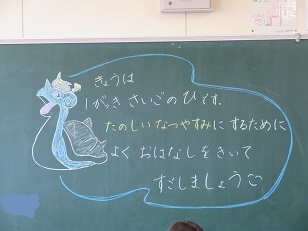 きょうは
1がっき さいごのひです。
たのしい なつやすみに するために
よく おはなしをきいて
すごしましょう